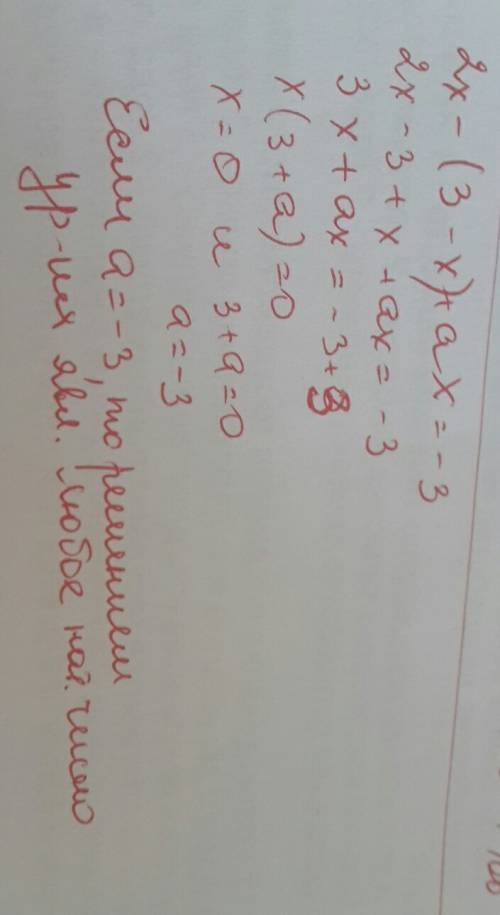 2x - (3 - x) + ax = -3
2x - 3 + x + ax = -3
3x + ax = -3 + 3
x(3 + a) = 0
x = 0 и 3 + a = 0
a = -3
Если a = -3, то решением
ур-ния явл. любое нат. число